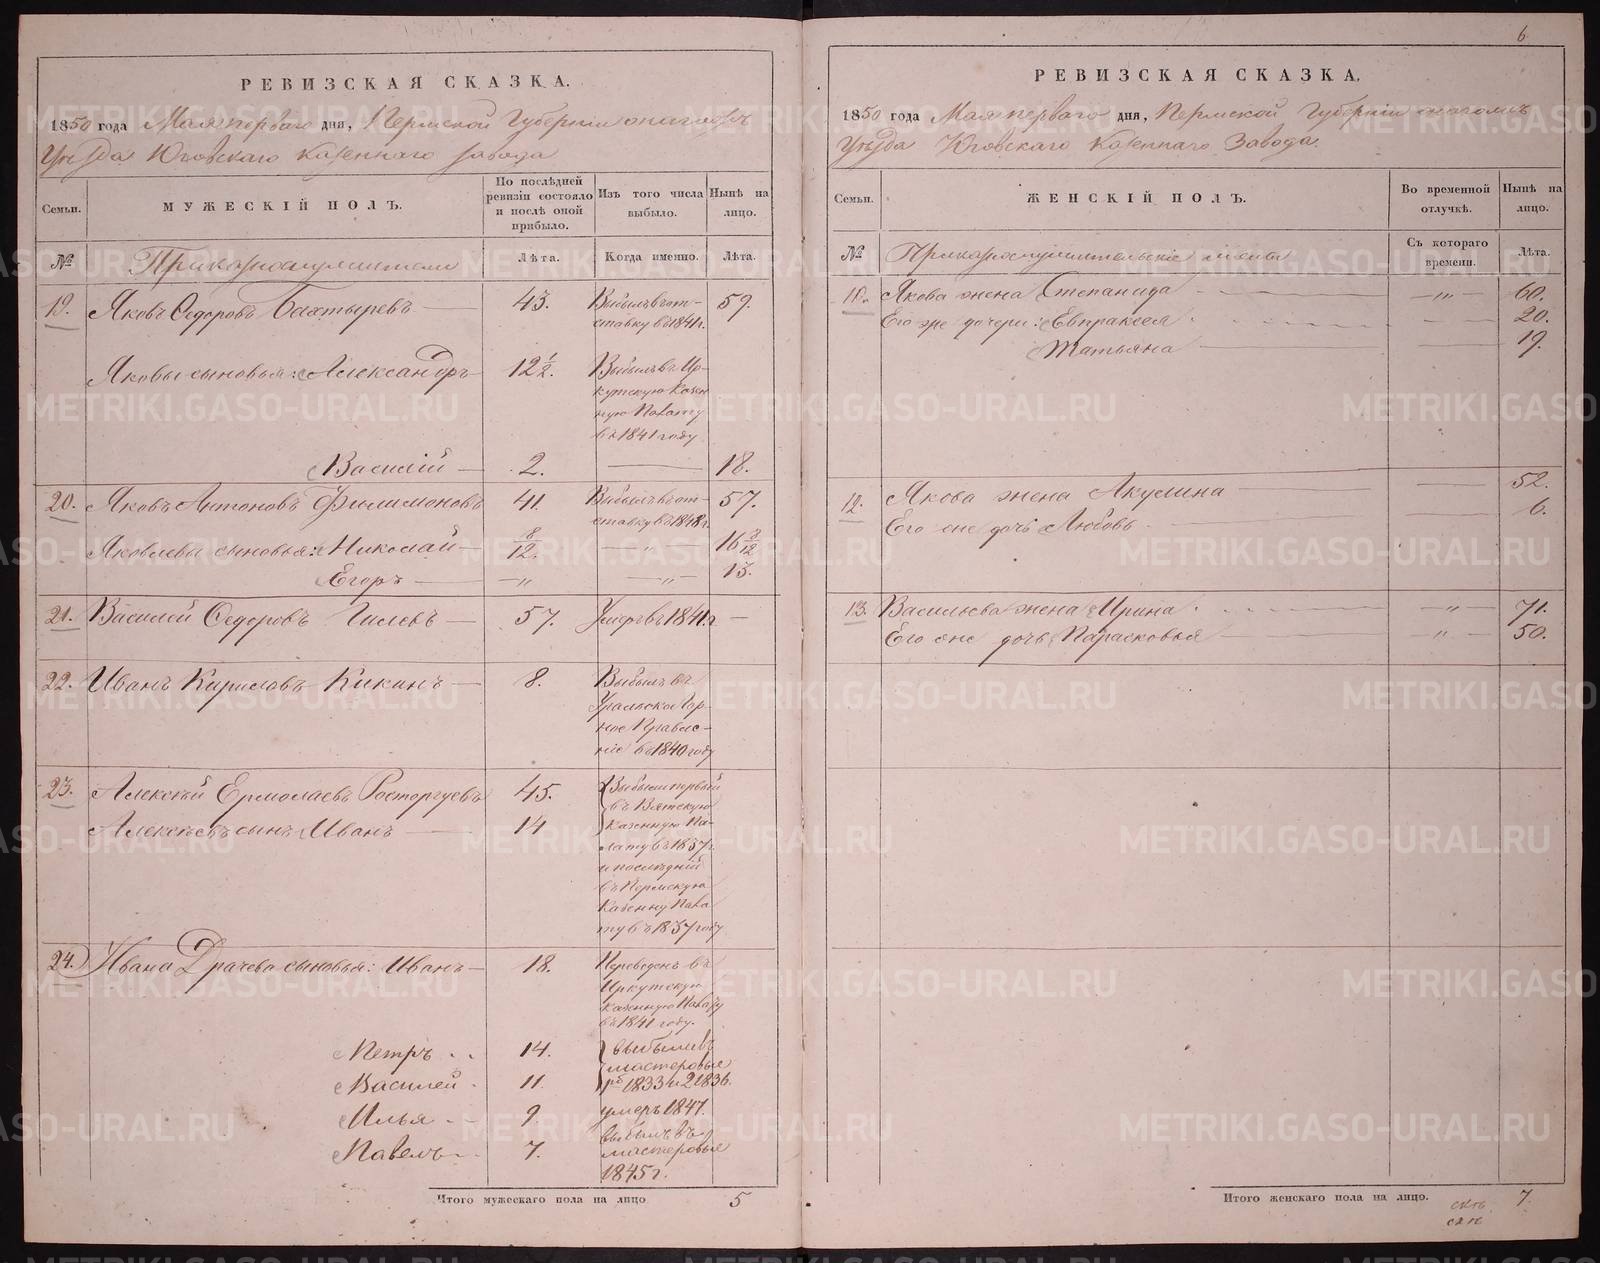 РЕВИЗСКАЯ СКАЗКА.
1850 года Мая первого дня, Пермской Губернии
Уѣзда Юговскаго Казеннаго завода
Семьи.
МУЖЕСКІЙ ПОЛЪ.
По послѣдней ревизіи состояло и послѣ оной прибыло.
Изъ того числа выбыло.
Нынѣ на лицо.
№
Лѣта.
Когда именно.
Лѣта.
19. Яковъ Ѳедоровъ Бахтыревъ 43. Выбылъ въ от- 59.
ставку въ 1841 г.
Яковы сыновья: Александръ 12 1/2. Выбылъ въ Ир-
кутскую Казен
ную Палату
въ 1841 году
Василій 2. 18.
20. Яковъ Антоновъ Филимоновъ 41. Выбылъ въ от- 57.
ставку въ 1848 г.
Яковлева сыновья: Николай 8/12. 16 8/12
Егоръ — „ — „ — 13.
21. Василей Ѳедоровъ Гилевъ 57. Умеръ въ 1841 г. —
22. Иванъ Кириловъ Кикинъ 8. Выбылъ въ
Уральское Гор-
ное Правле-
ніе въ 1840 году
23. Алексѣй Ермолаевъ Расторгуевъ 45. Выбыли первый
въ Вятскую
Алексѣевъ сынъ Иванъ 14 Казенную Па-
лату въ 1837 г.
и послѣдній
въ Пермскую
Казенну Пала
ту въ 1837 году
24. Ивана Драчева сыновья: Иванъ 18. Переведенъ въ
Иркутскую
казенную Палату
въ 1841 году.
Петръ 14. выбыли въ
мастеровые
Василей 11. 1833 и 2 1836.
Илья 9. умеръ 1847.
Павелъ 7. выбылъ въ
мастеровые
1845 г.
Итого мужескаго пола на лицо 5
6
РЕВИЗСКАЯ СКАЗКА.
1850 года Мая первого дня, Пермской Губерніи
Уѣзда Юговскаго Казеннаго Завода.
Семьи.
ЖЕНСКІЙ ПОЛЪ.
Во временной отлучкѣ.
Нынѣ на лицо.
№
Съ котораго времени.
Лѣта.
11. Якова жена Степанида — „ — 60.
Его же дочери: Евпраксея 20.
Татьяна 19.
12. Якова жена Акулина 52.
Его же дочь Любовь 6.
13. Васильева жена Ирина — „ — 71.
Его же дочь Парасковья — „ — 50.
Итого женскаго пола на лицо. 7.
METRIKI.GASO-URAL.RU